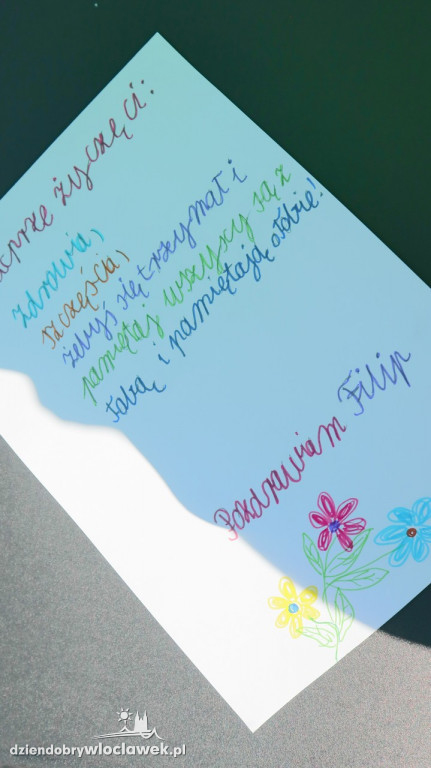 życzę ci:
zdrowia,
szczęścia,
żebyś się trzymał i
pamiętaj wszyscy są z
tobą i pamiętają o tobie!
Pozdrawiam Filip
dziendobrywloclawek.pl